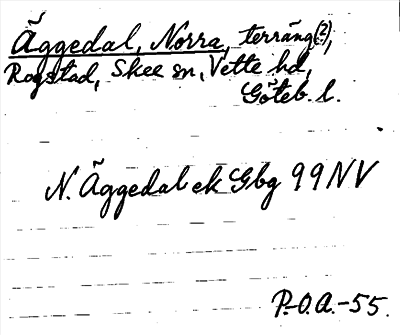 Äggedal, Norra, terräng(?),
Rogstad, Skee sn, Vette hd,
Göteb. l.
N. Äggedal ek Gbg 99 NV
P.-O.A.-55.